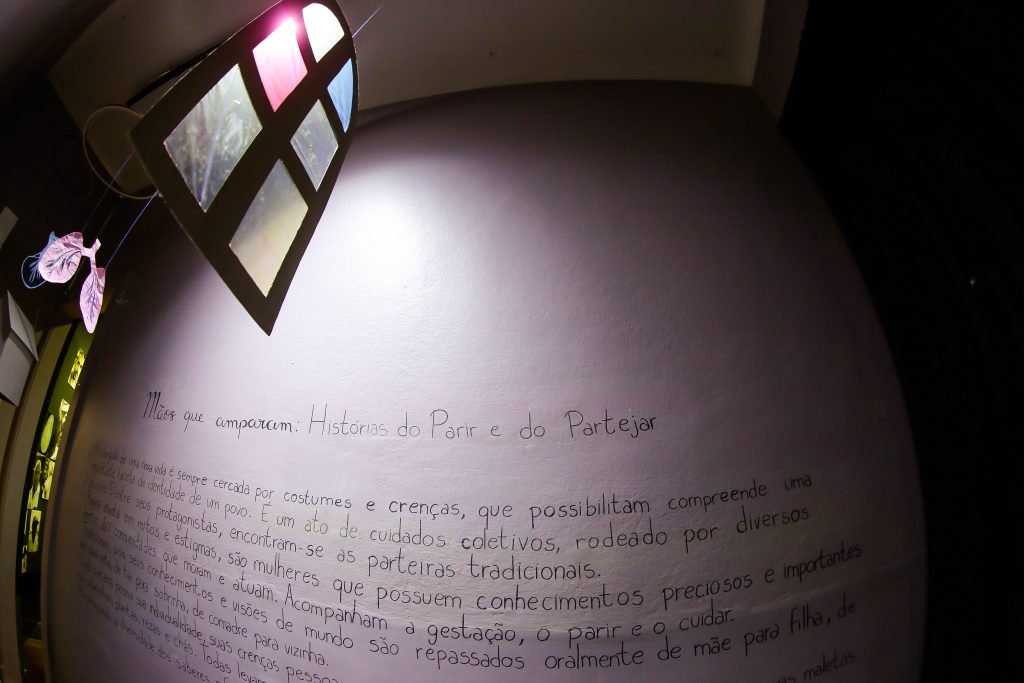 Mãos que amparam: Histórias do Parir e do Partejar
A chegada de uma nova vida é sempre cercada por costumes e crenças, que possibilitam compreende uma
importante faceta da identidade de um povo. É um ato de cuidados coletivos, rodeado por diversos
Dentre seus protagonistas, encontram-se as parteiras tradicionais.
em mitos e estigmas, são mulheres que possuem conhecimentos preciosos e importantes
das comunidades que moram e atuam. Acompanham a gestação, o parir e o cuidar.
seus conhecimentos e visões de mundo são repassados oralmente de mãe para filha, de
de tia para sobrinha, de comadre para vizinha.
sua individualidade, suas crenças
plantas, rezas e chás. Todas
maletas
a diversidade dos saberes